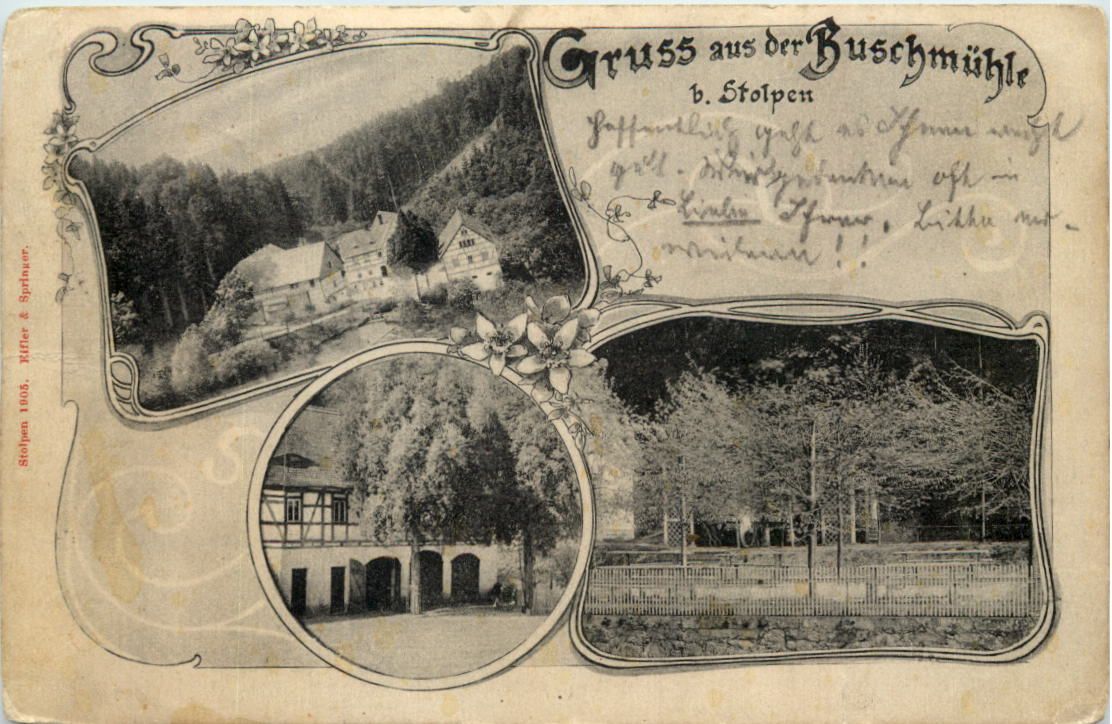 Gruss aus der Buschmühle
b. Stolpen
Hoffentlich geht es Ihnen recht
gut. gedenken oft in
Liebe Ihrer, bitte
!!
Stolpen 1905. Eifler & Springer.